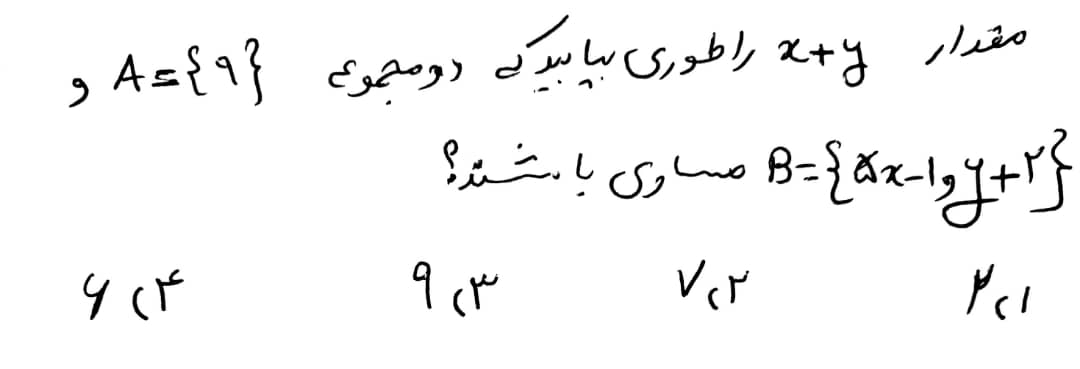 مقدار x+y را طوری بیابید که دو مجموعه A={۹} و
B={۵x-۱ و y+۲} مساوی باشند؟
۱) ۲ ۲) ۷ ۳) ۹ ۴) ۶